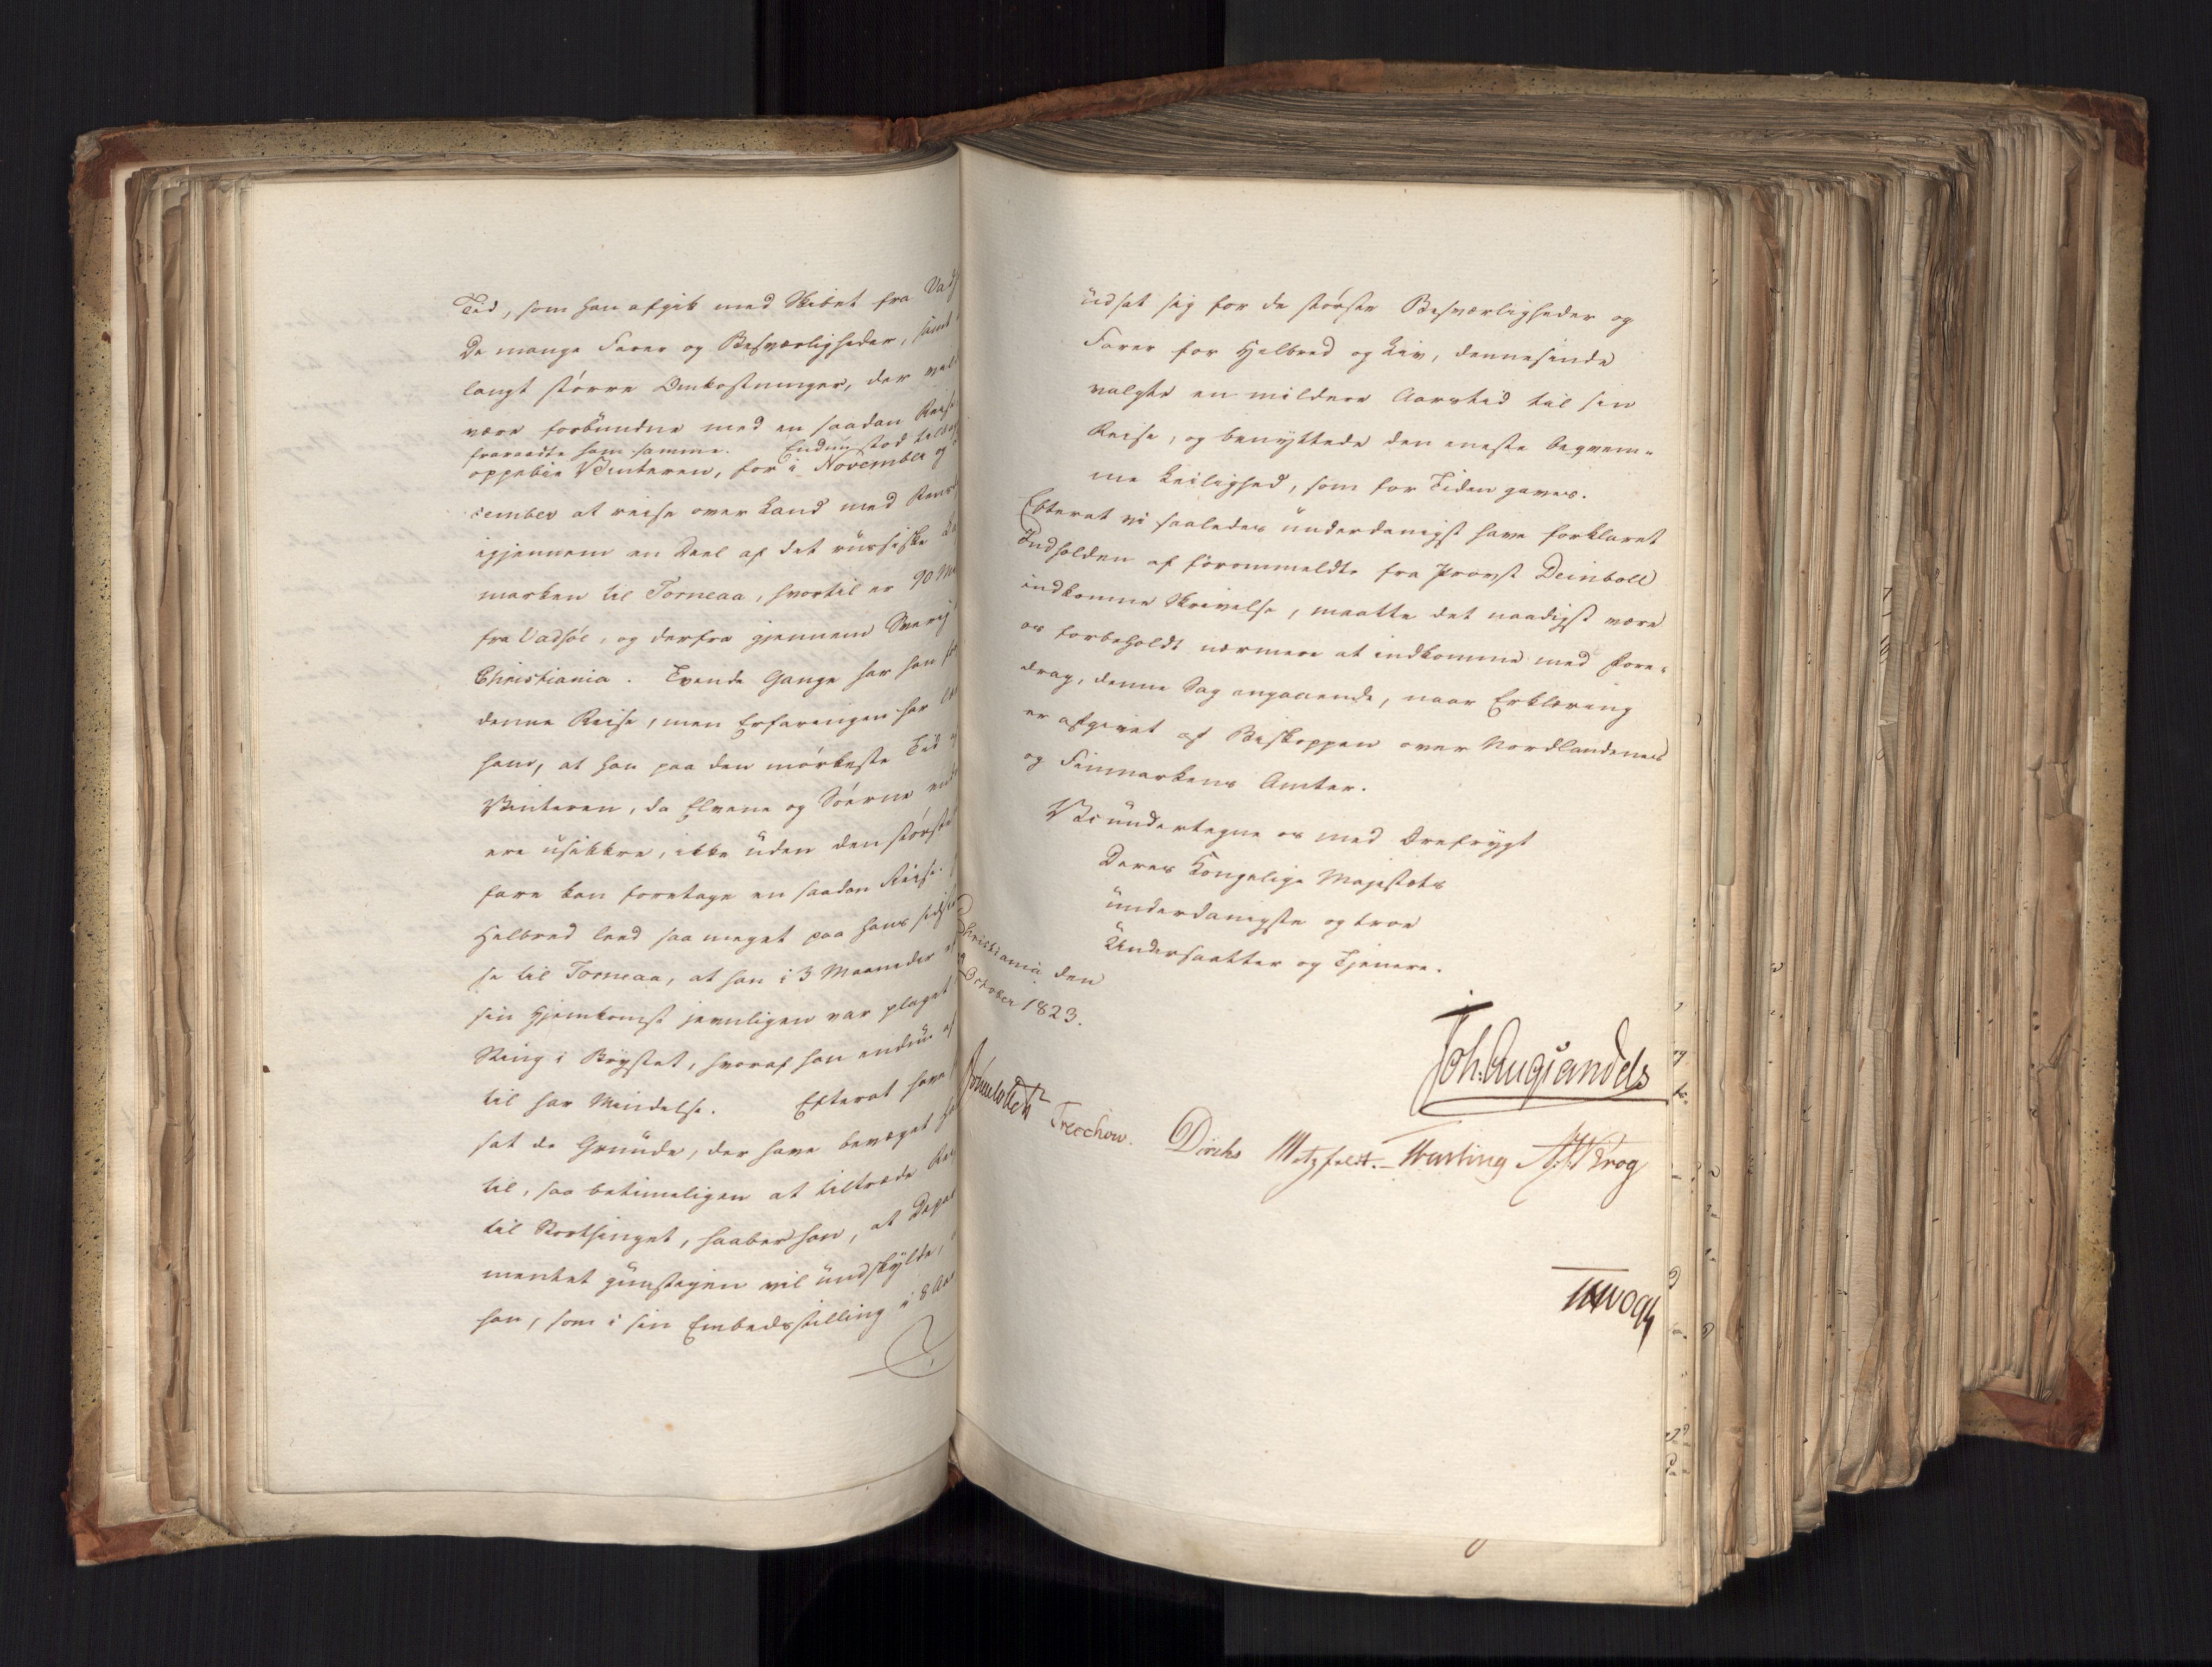 Tid, som han afgik med Skibet fra Vads
de mange Farer og Besværligheder, samt
langt større Omkostninger, der vel
være forbundne med en saadan Reise
fraraadte ham samme. Endnu stod tilbage
oppebie Vinteren, for i November og
cember at reise over Land med Rens
igjennem en Deel af det russiske
marken til Torneaa, hvortil er 90 Mi
fra Vadsöe, og derfra gjennem Sverig
Christiania. Tvende Gange har han
denne Reise, men Erfaringen har
ham, at han paa den mørkeste Tid
Vinteren, da Elvene og Søerne
ere usikkre, ikke uden den største
fare kan foretage en saadan Reise.
Helbred leed saa meget paa hans sidste
se til Torneaa, at han i 3 Maaneder
sin Hjemkomst jevnligen var plaget
Sting i Brystet, hvoraf han endnu
til har Mindelse. Efterat have
sat de Grunde, der have bevæget
til, saa betimeligen at tiltræde
til Storthinget, haaber han, at Depar
mentet gunstigen vil undskylde,
han, som i sin Embedsstilling i 8 Aar
udsat sig for de største Besværligheder og
Farer for Helbred og Liv, dennesinde
valgte en mildere Aarstid til sin
Reise, og benyttede den eneste beqvem-
me Leilighed, som for Tiden gaves.
Efterat vi saaledes underdanigst have forklaret
Indholden af forommeldte fra Provst Deinboll
indkomne Skrivelse, maatte det naadigst være
os forbeholdt nærmere at indkomme med Fore-
drag, denne Sag angaaende, naar Erklæring
er afgivet af Biskoppen over Nordlandenes
og Finmarkens Amter.
Vi undertegne os med Ærefrygt
Deres Kongelige Majestæts
underdanigste og troe
Undersaatter og Tjenere.
Christiania den
October 1823.
Joh. Aug Sandels
Sommerfeldt Treschow. Diriks Motzfeldt. Fasting Krog
Vogt